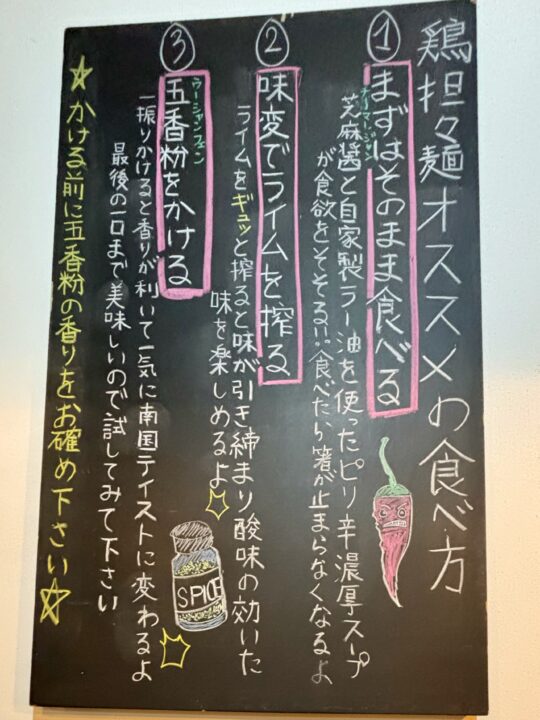 鶏担々麺オススメの食べ方
①まずはそのまま食べる
チーマージャン
芝麻醤と自家製ラー油を使ったピリ辛濃厚スープ
が食欲をそそる!!食べたら箸が止まらなくなるよ
②味変でライムを搾る
ライムをギュッと搾ると味が引き締まり酸味の効いた
味を楽しめるよ☆
③五香粉をかける
ウーシャンフェン
一振りかけると香りが利いて一気に南国テイストに変わるよ
最後の一口まで美味しいので試してみて下さい
☆かける前に五香粉の香りをお確め下さい☆
SPICE